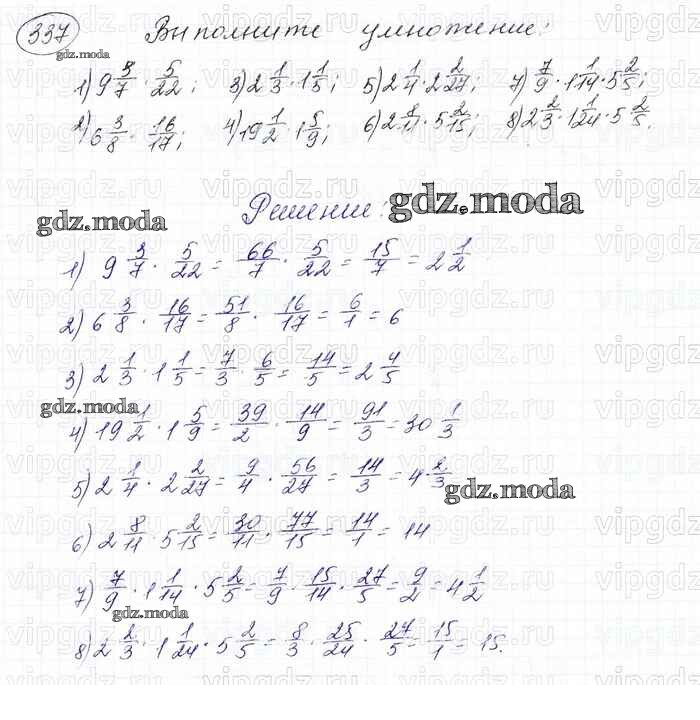 337 Выполните умножение:
1) 9 3/7 · 5/22; 3) 2 1/3 · 1 1/5; 5) 2 1/4 · 2 2/27; 7) 7/9 · 1 1/14 · 5 2/5;
2) 6 3/8 · 16/17; 4) 19 1/2 · 1 5/9; 6) 2 8/11 · 5 2/15; 8) 2 2/3 · 1 1/24 · 5 2/5.
Решение:
gdz.moda
gdz.moda
1) 9 3/7 · 5/22 = 66/7 · 5/22 = 15/7 = 2 1/2
2) 6 3/8 · 16/17 = 51/8 · 16/17 = 6/1 = 6
3) 2 1/3 · 1 1/5 = 7/3 · 6/5 = 14/5 = 2 4/5
gdz.moda
4) 19 1/2 · 1 5/9 = 39/2 · 14/9 = 91/3 = 30 1/3
5) 2 1/4 · 2 2/27 = 9/4 · 56/27 = 14/3 = 4 · 2/3
gdz.moda
6) 2 8/11 · 5 2/15 = 30/11 · 77/15 = 14/1 = 14
7) 7/9 · 1 1/14 · 5 2/5 = 7/9 · 15/14 · 27/5 = 9/2 = 4 1/2
gdz.moda
8) 2 2/3 · 1 1/24 · 5 2/5 = 8/3 · 25/24 · 27/5 = 15/1 = 15.
gdz.moda
vipgdz.ru